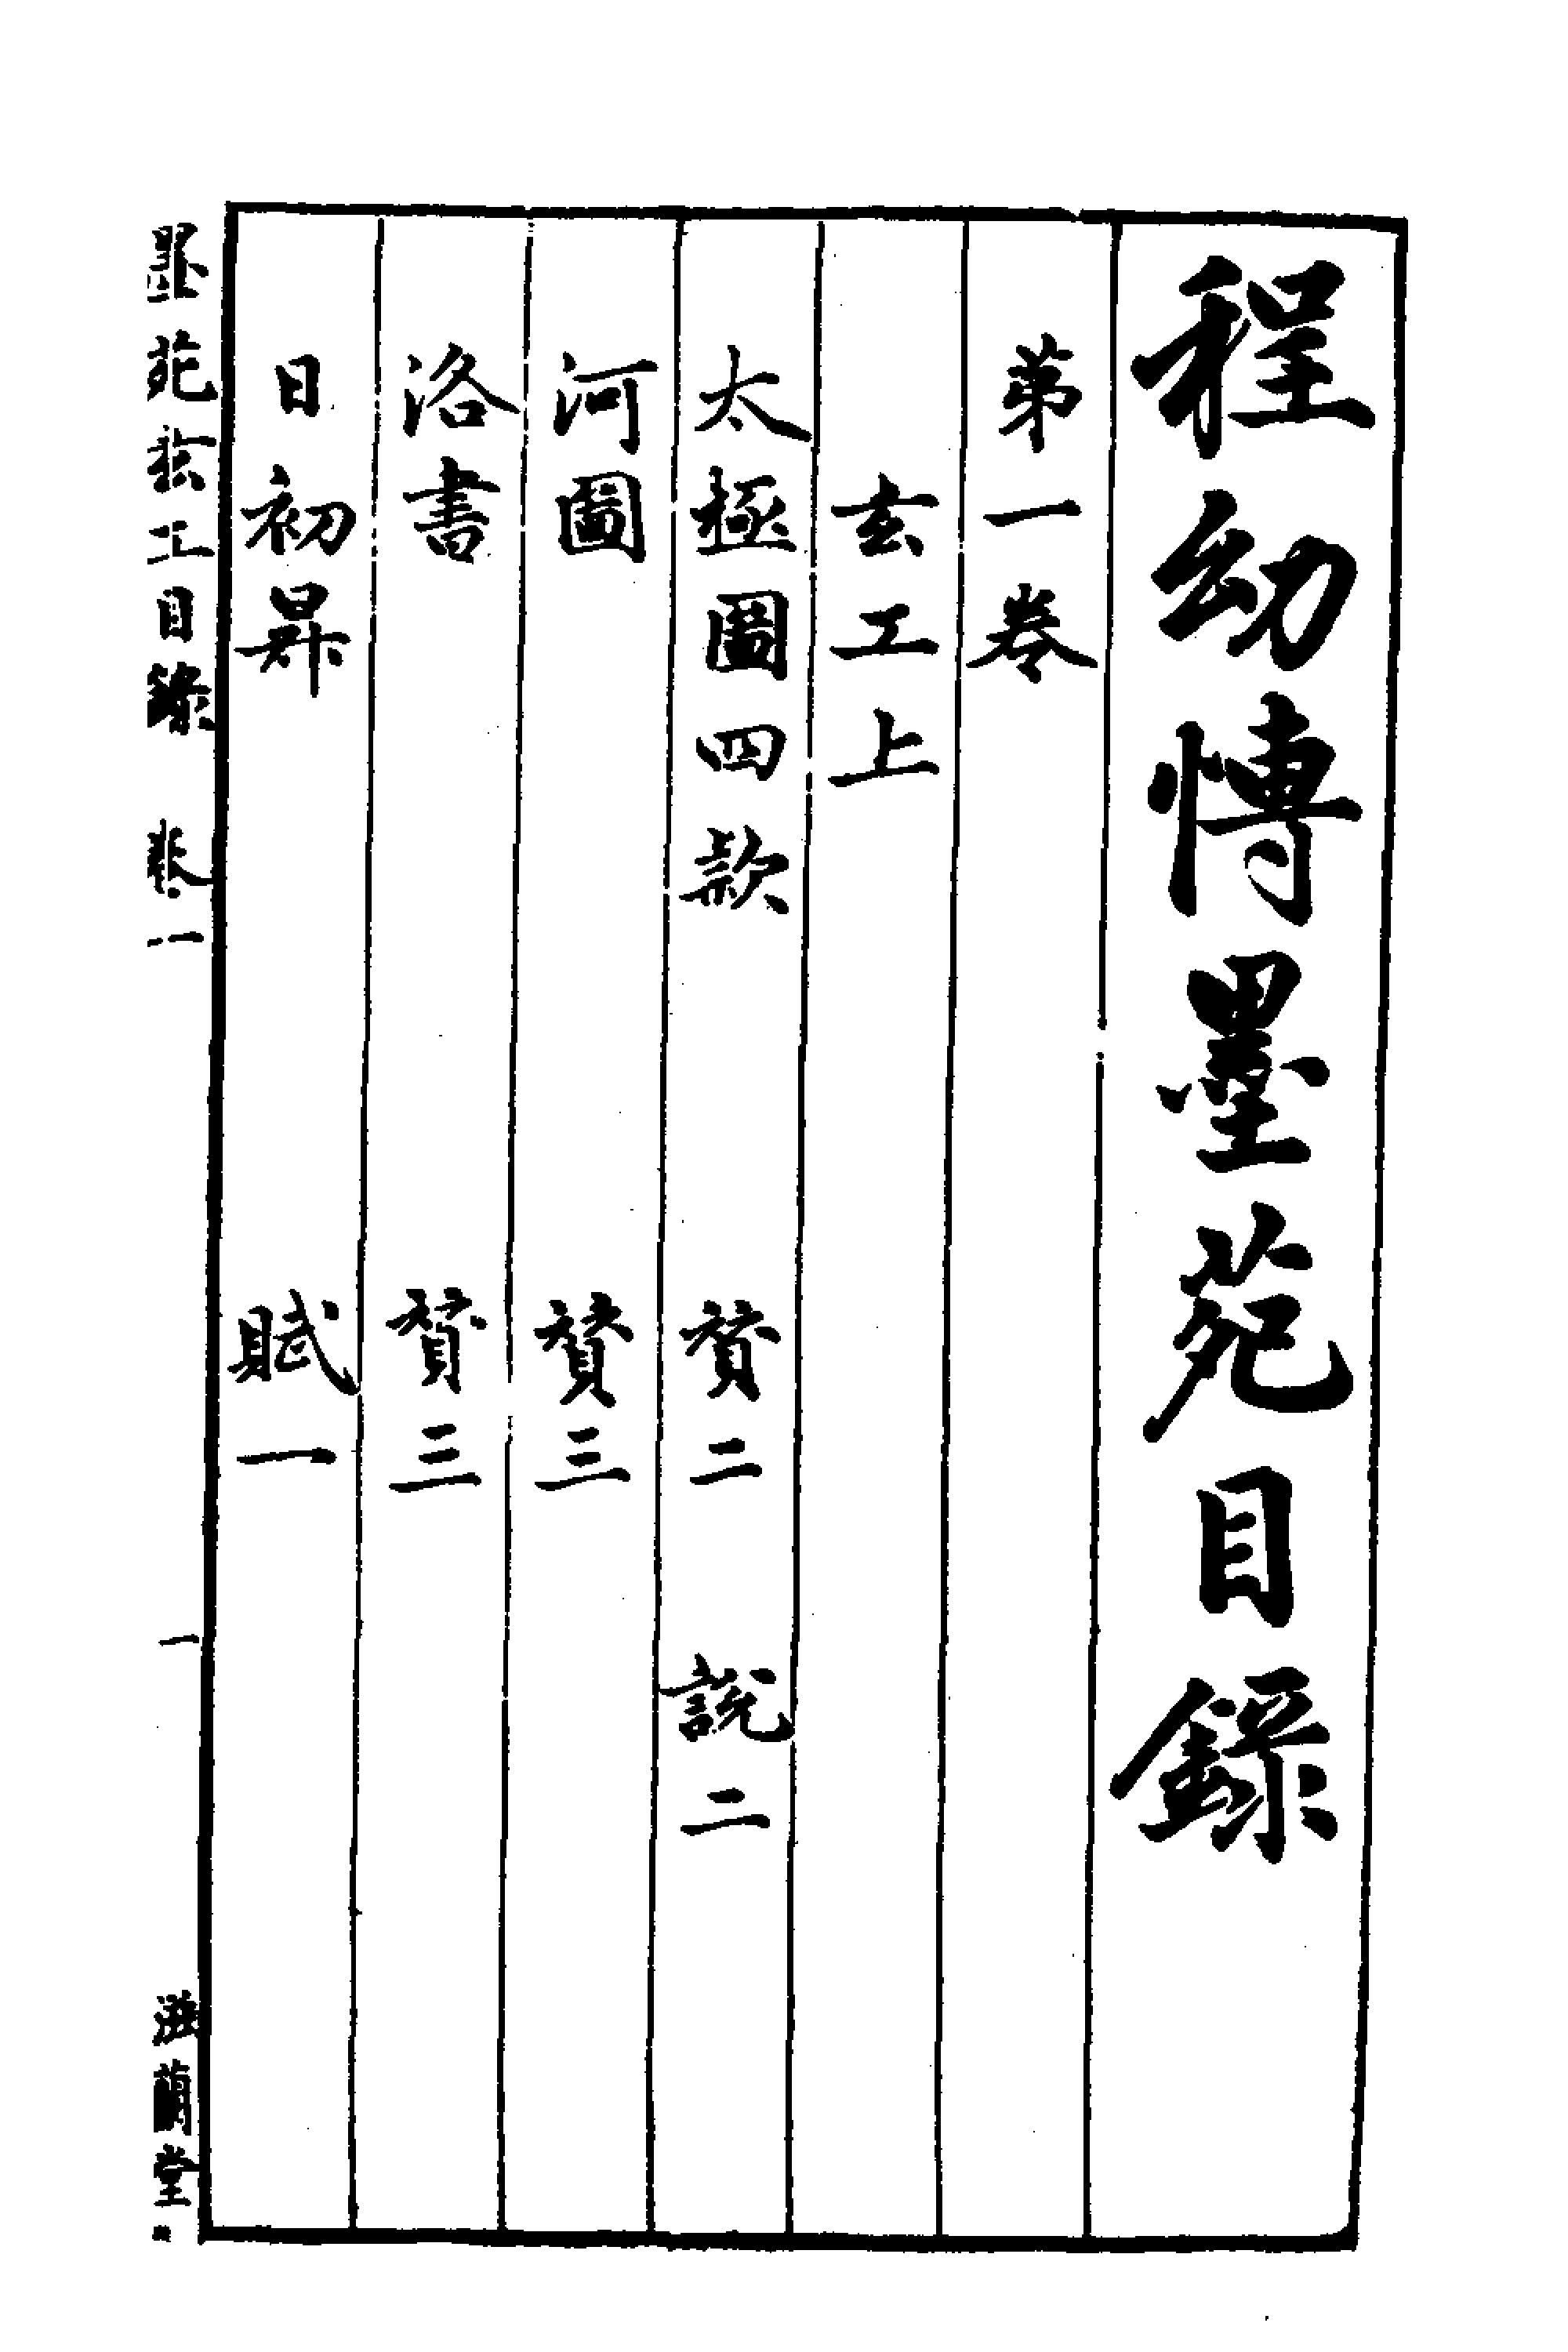 程幼博墨苑目錄
第一卷
玄工上
太極圖四款 贊二 說二
河圖 贊三
洛書 贊三
日初昇 賦一
墨苑玄工目錄 卷一 一 滋蘭堂